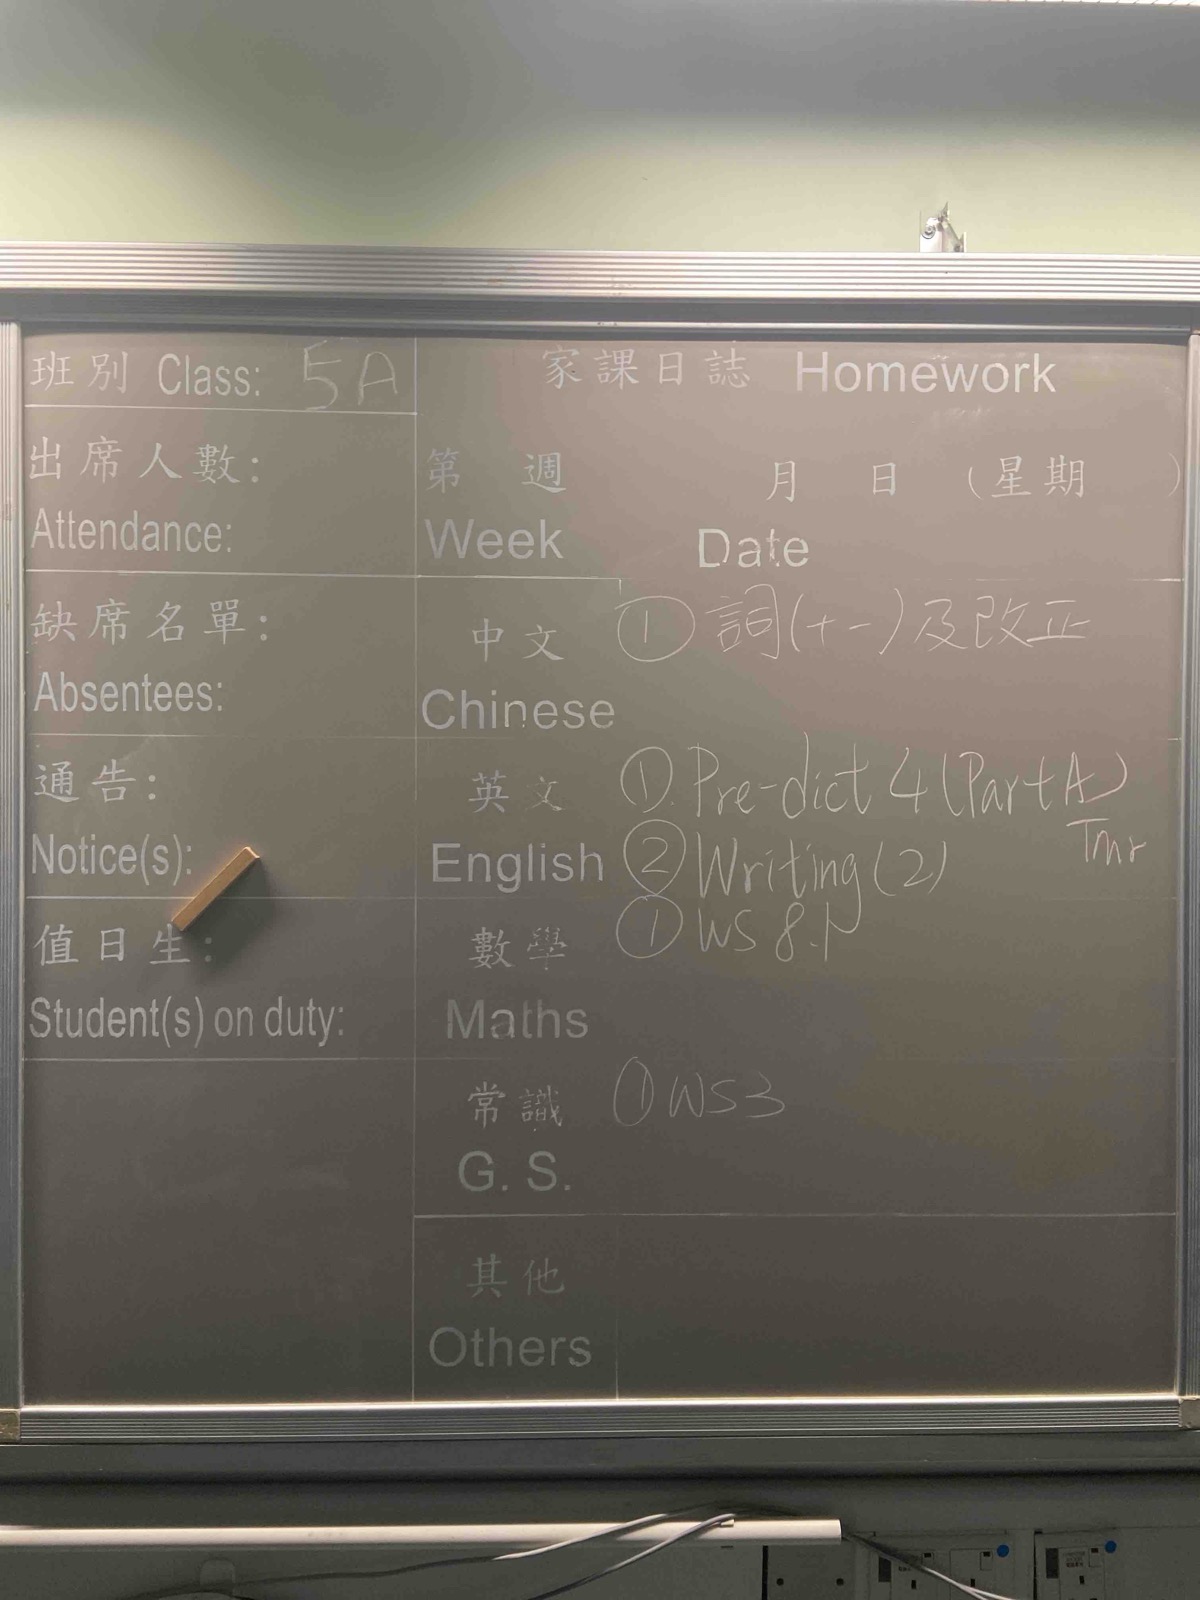 班別 Class: 5A
出席人數:
Attendance:
缺席名單:
Absentees:
通告:
Notice(s):
值日生:
Student(s) on duty:
家課日誌 Homework
第 週 月 日 (星期 )
Week Date
中文 ① 詞(十一)及改正
Chinese
英文 ① Pre-dict 4 (Part A)
Tmr
English ② Writing (2)
數學 ① WS 8.1
Maths
常識 ① WS3
G. S.
其他
Others